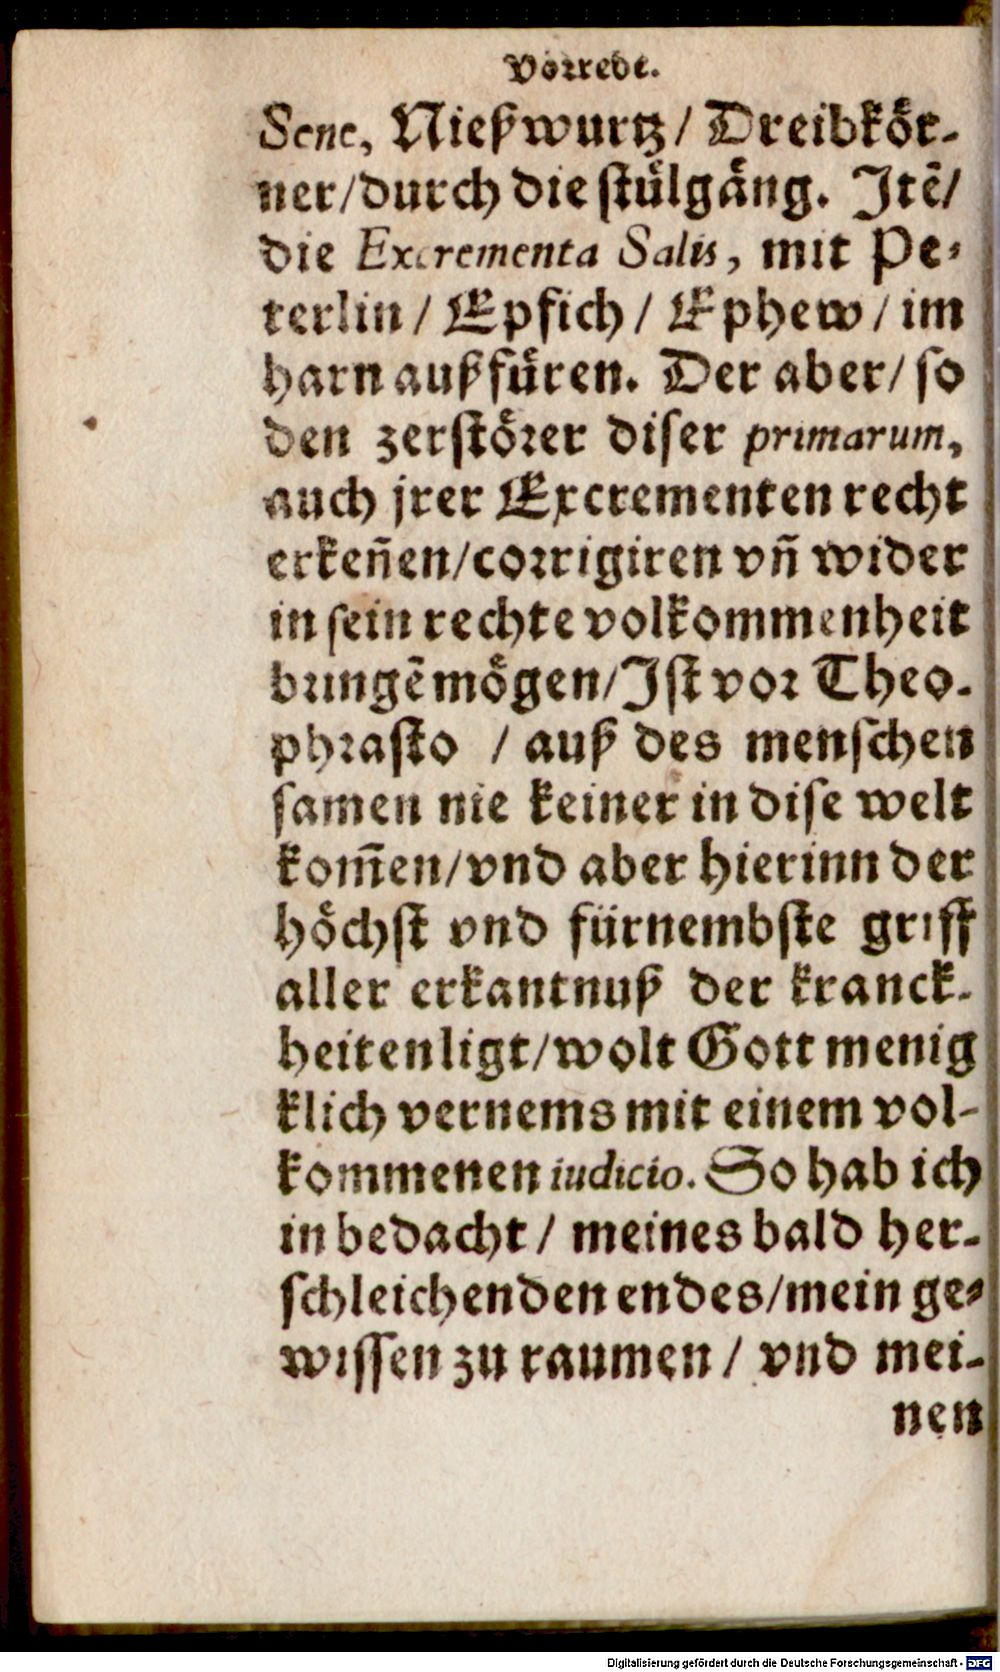 Vorrede.
Sene, Nießwurtz/ Dreibkör-
ner/durch die stůlgäng. Itē/
die Excrementa Salis, mit Pe-
terlin/ Epfich/ Ephew/ im
harn außfüren. Der aber/ so
den zerstörer diser primarum,
auch jrer Excrementen recht
erkeñen/corrigiren vñ wider
in sein rechte volkommenheit
bringē mögen/Ist vor Theo-
phrasto / auß des menschen
samen nie keiner in dise welt
kom̄en/vnd aber hierinn der
höchst vnd fürnembste griff
aller erkantnuß der kranck-
heiten ligt/wolt Gott menig
klich vernems mit einem vol-
kommenen iudicio. So hab ich
in bedacht/ meines bald her-
schleichenden endes/mein ge-
wissen zu raumen/ vnd mei-
nen
Digitalisierung gefördert durch die Deutsche Forschungsgemeinschaft - DFG